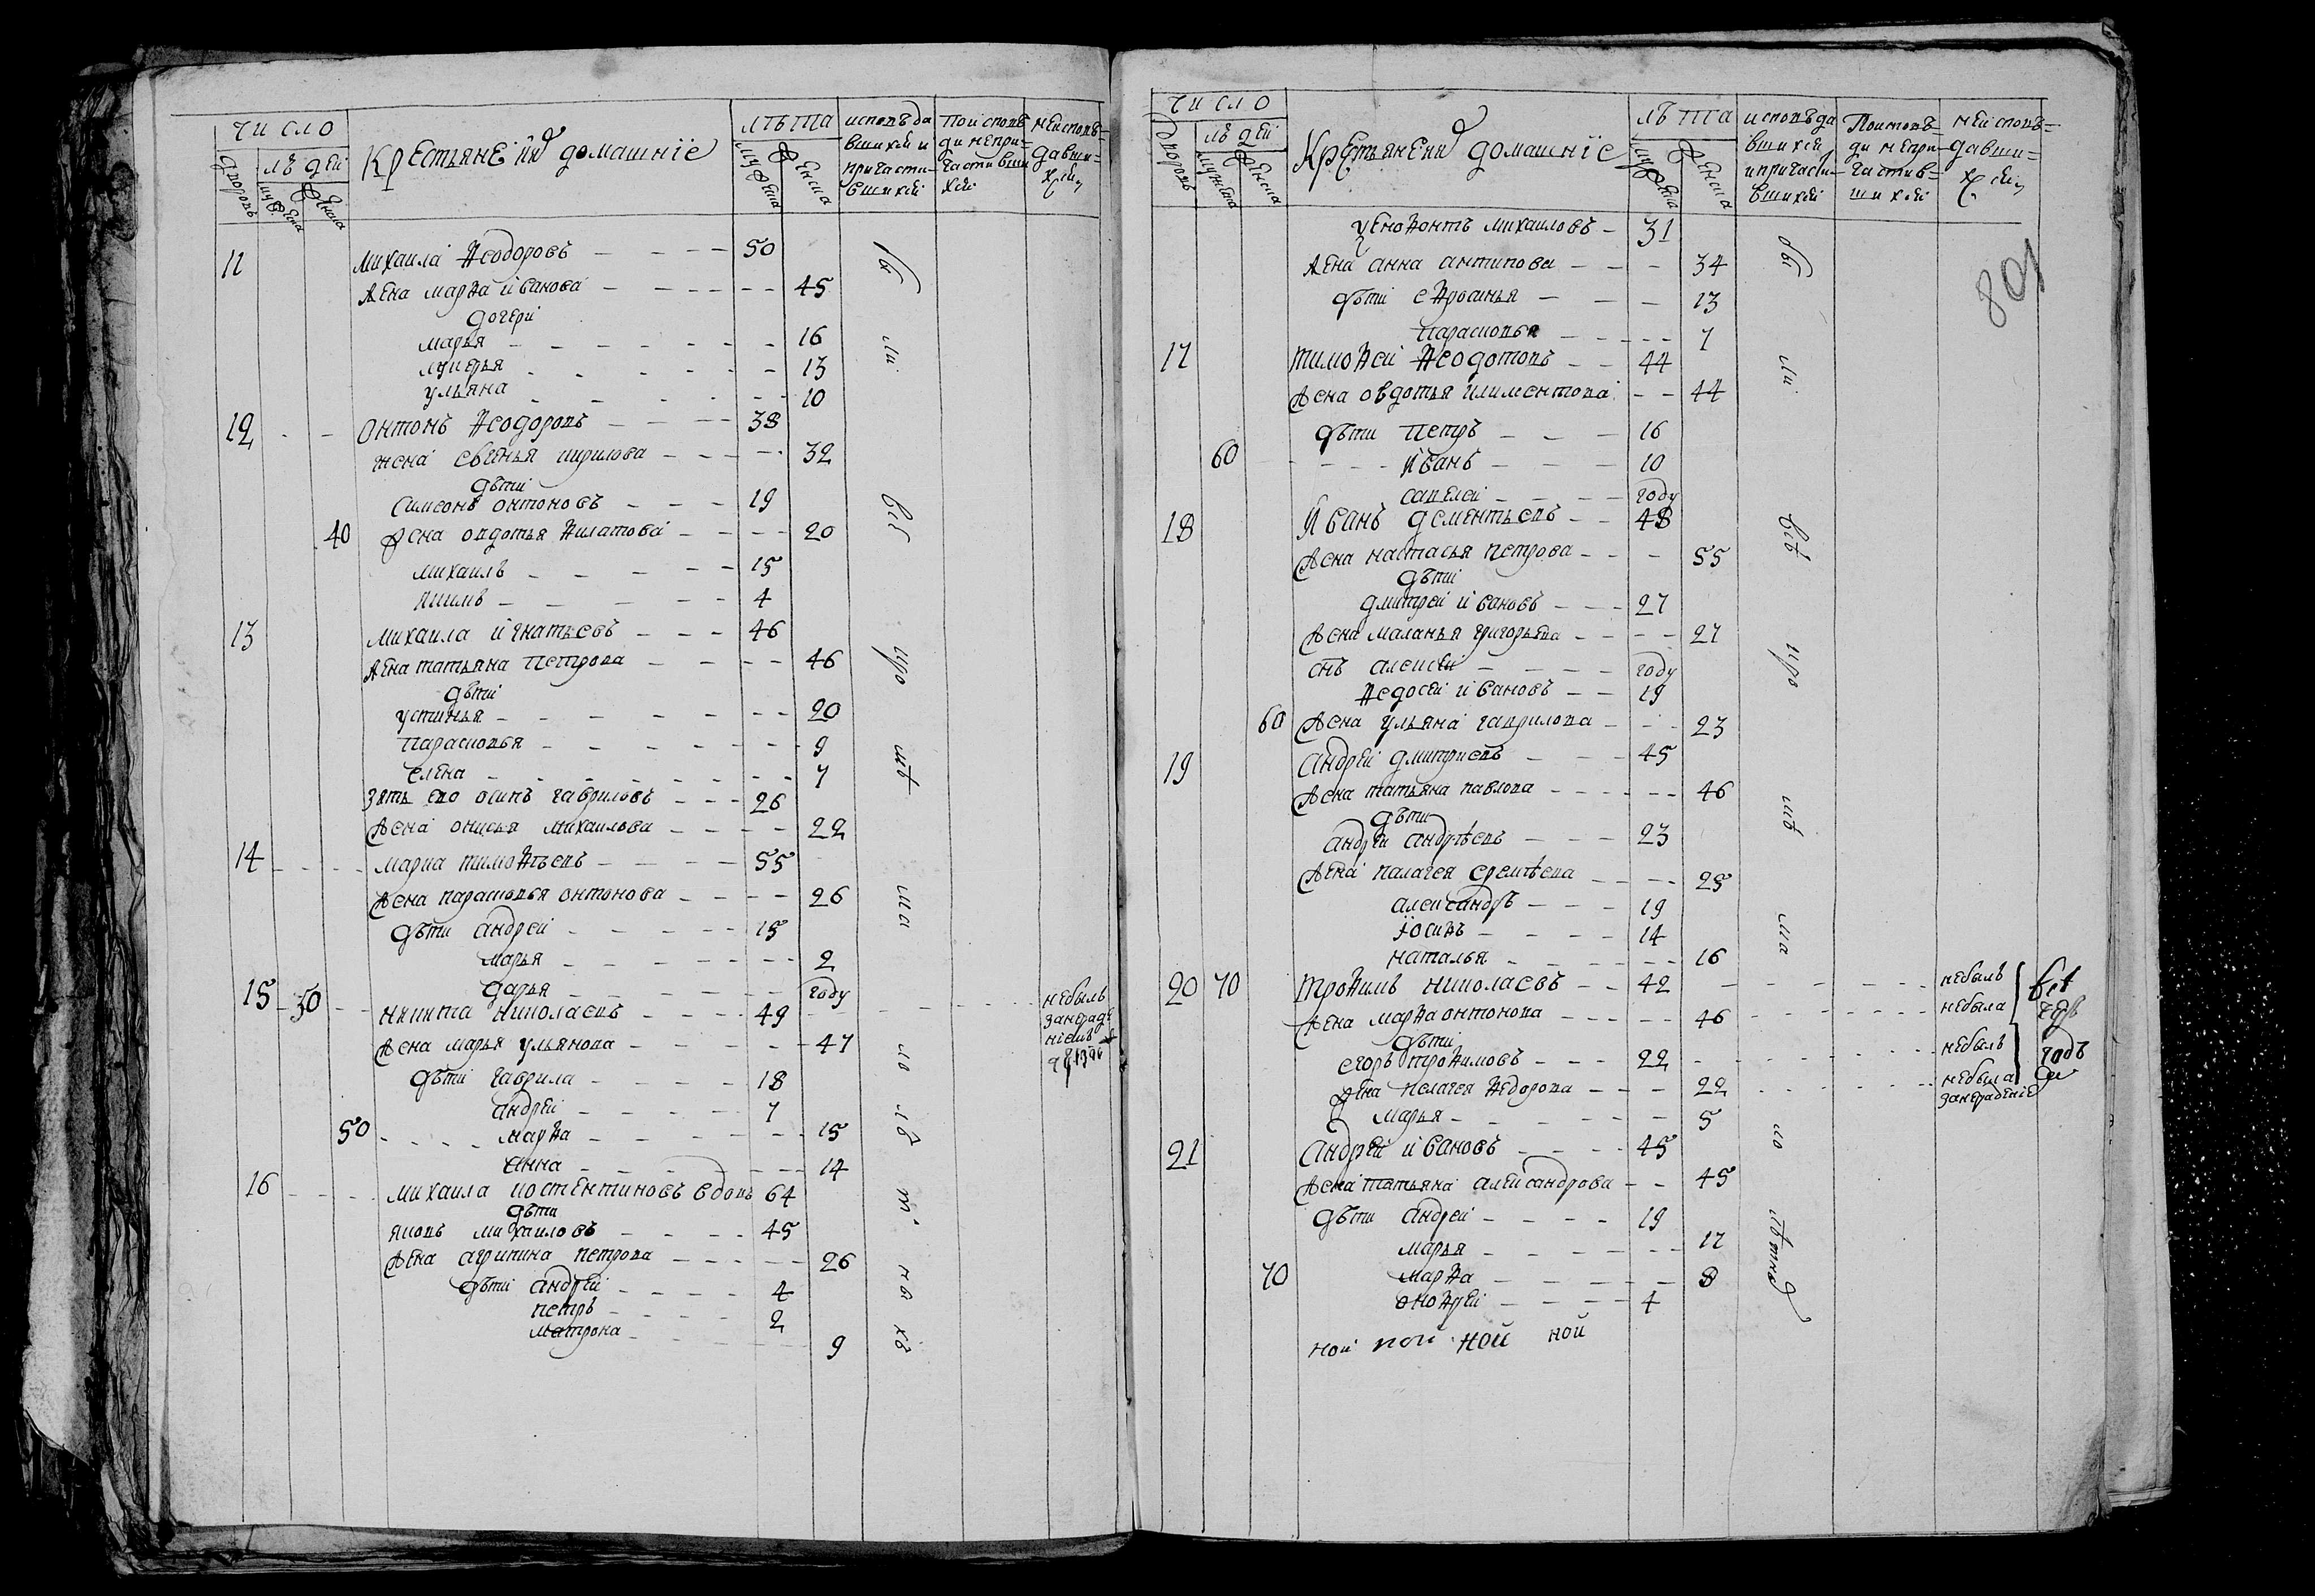 число
лѣта
исповѣда
поисповѣ
неисповѣ=
Дворовъ
людей
Крестьяне и ихъ домашнїе
мужеска
женска
вшихся и
ди непри=
давши=
причасти=
частивши
хся
вшихся
хся
11 Михаила Ѳеодоровъ 50
жена марѳа ивановa 45
дочери
марья 16
лукерья 13
ульяна 10
12 онтонъ Ѳеодоровъ 38
жена евгенья кирилова 32
дѣти
Симеонъ онтоновъ 19
40 жена овдотья Филатова 20
михаилъ 15
якимъ 4
13 михаила игнатьевъ 46
жена татьяна петрова 46
дѣти
устинья 20
парасковья 9
елена 7
зять ево осипъ гавриловъ 26
жена онисья михаилова 22
14 марка тимоѲѣевъ 55
жена парасковья онтонова 26
дѣти андрей 15
марья 2
дарья году
15 50 никита николаевъ 49 небылъ
занерадѣ
нїемъ
жена марья ульянова 47
дѣти гаврила 18
андрей 7
50 марѳа 15
анна 14
16 михаила костентиновъ вдовъ 64
дѣти
яковъ михаиловъ 45
жена агрипина петрова 26
дѣти андрей 4
петръ 2
матрона 9
число
лѣта
исповѣда
Поисповѣ=
неисповѣ=
Дворовъ
людей
Крестьяне и ихъ домашнїе
мужеска
женска
вшихся
ди непри=
давши=
и причасти=
частив=
хся
вшихся
шихся
801
ѯеноѳонтъ михаиловъ 31
жена анна антипова 34
дѣти еѳросинья 13
парасковья 7
17 тимоѳей Ѳеодотовъ 44
жена овдотья климентова 44
дѣти петръ 16
60 иванъ 10
савелей году
18 иванъ дементьевъ 48
жена настасья петрова 55
дѣти
дмитрей ивановъ 27
жена маланья григорьева 27
снъ алексей году
Ѳедосей ивановъ 19
60 жена ульяна гаврилова 23
19 андрей дмитриевъ 45
жена татьяна павлова 46
дѣти
андрей андрѣевъ 23
жена палагея еремѣева 25
александръ 19
їосивъ 14
наталья 16
20 70 троѳимъ николаевъ 42 небылъ
жена марѳа онтонова 46 небыла
дѣти
егоръ троѳимовъ 22 небылъ
жена пелагея Ѳедорова 22 небыла
занераденїе
марья 5
21 андрей ивановъ 45
жена татьяна александрова 45
дѣти андрей 19
марья 12
70 марѳа 8
оноѳрей 4
ной ной ной ной